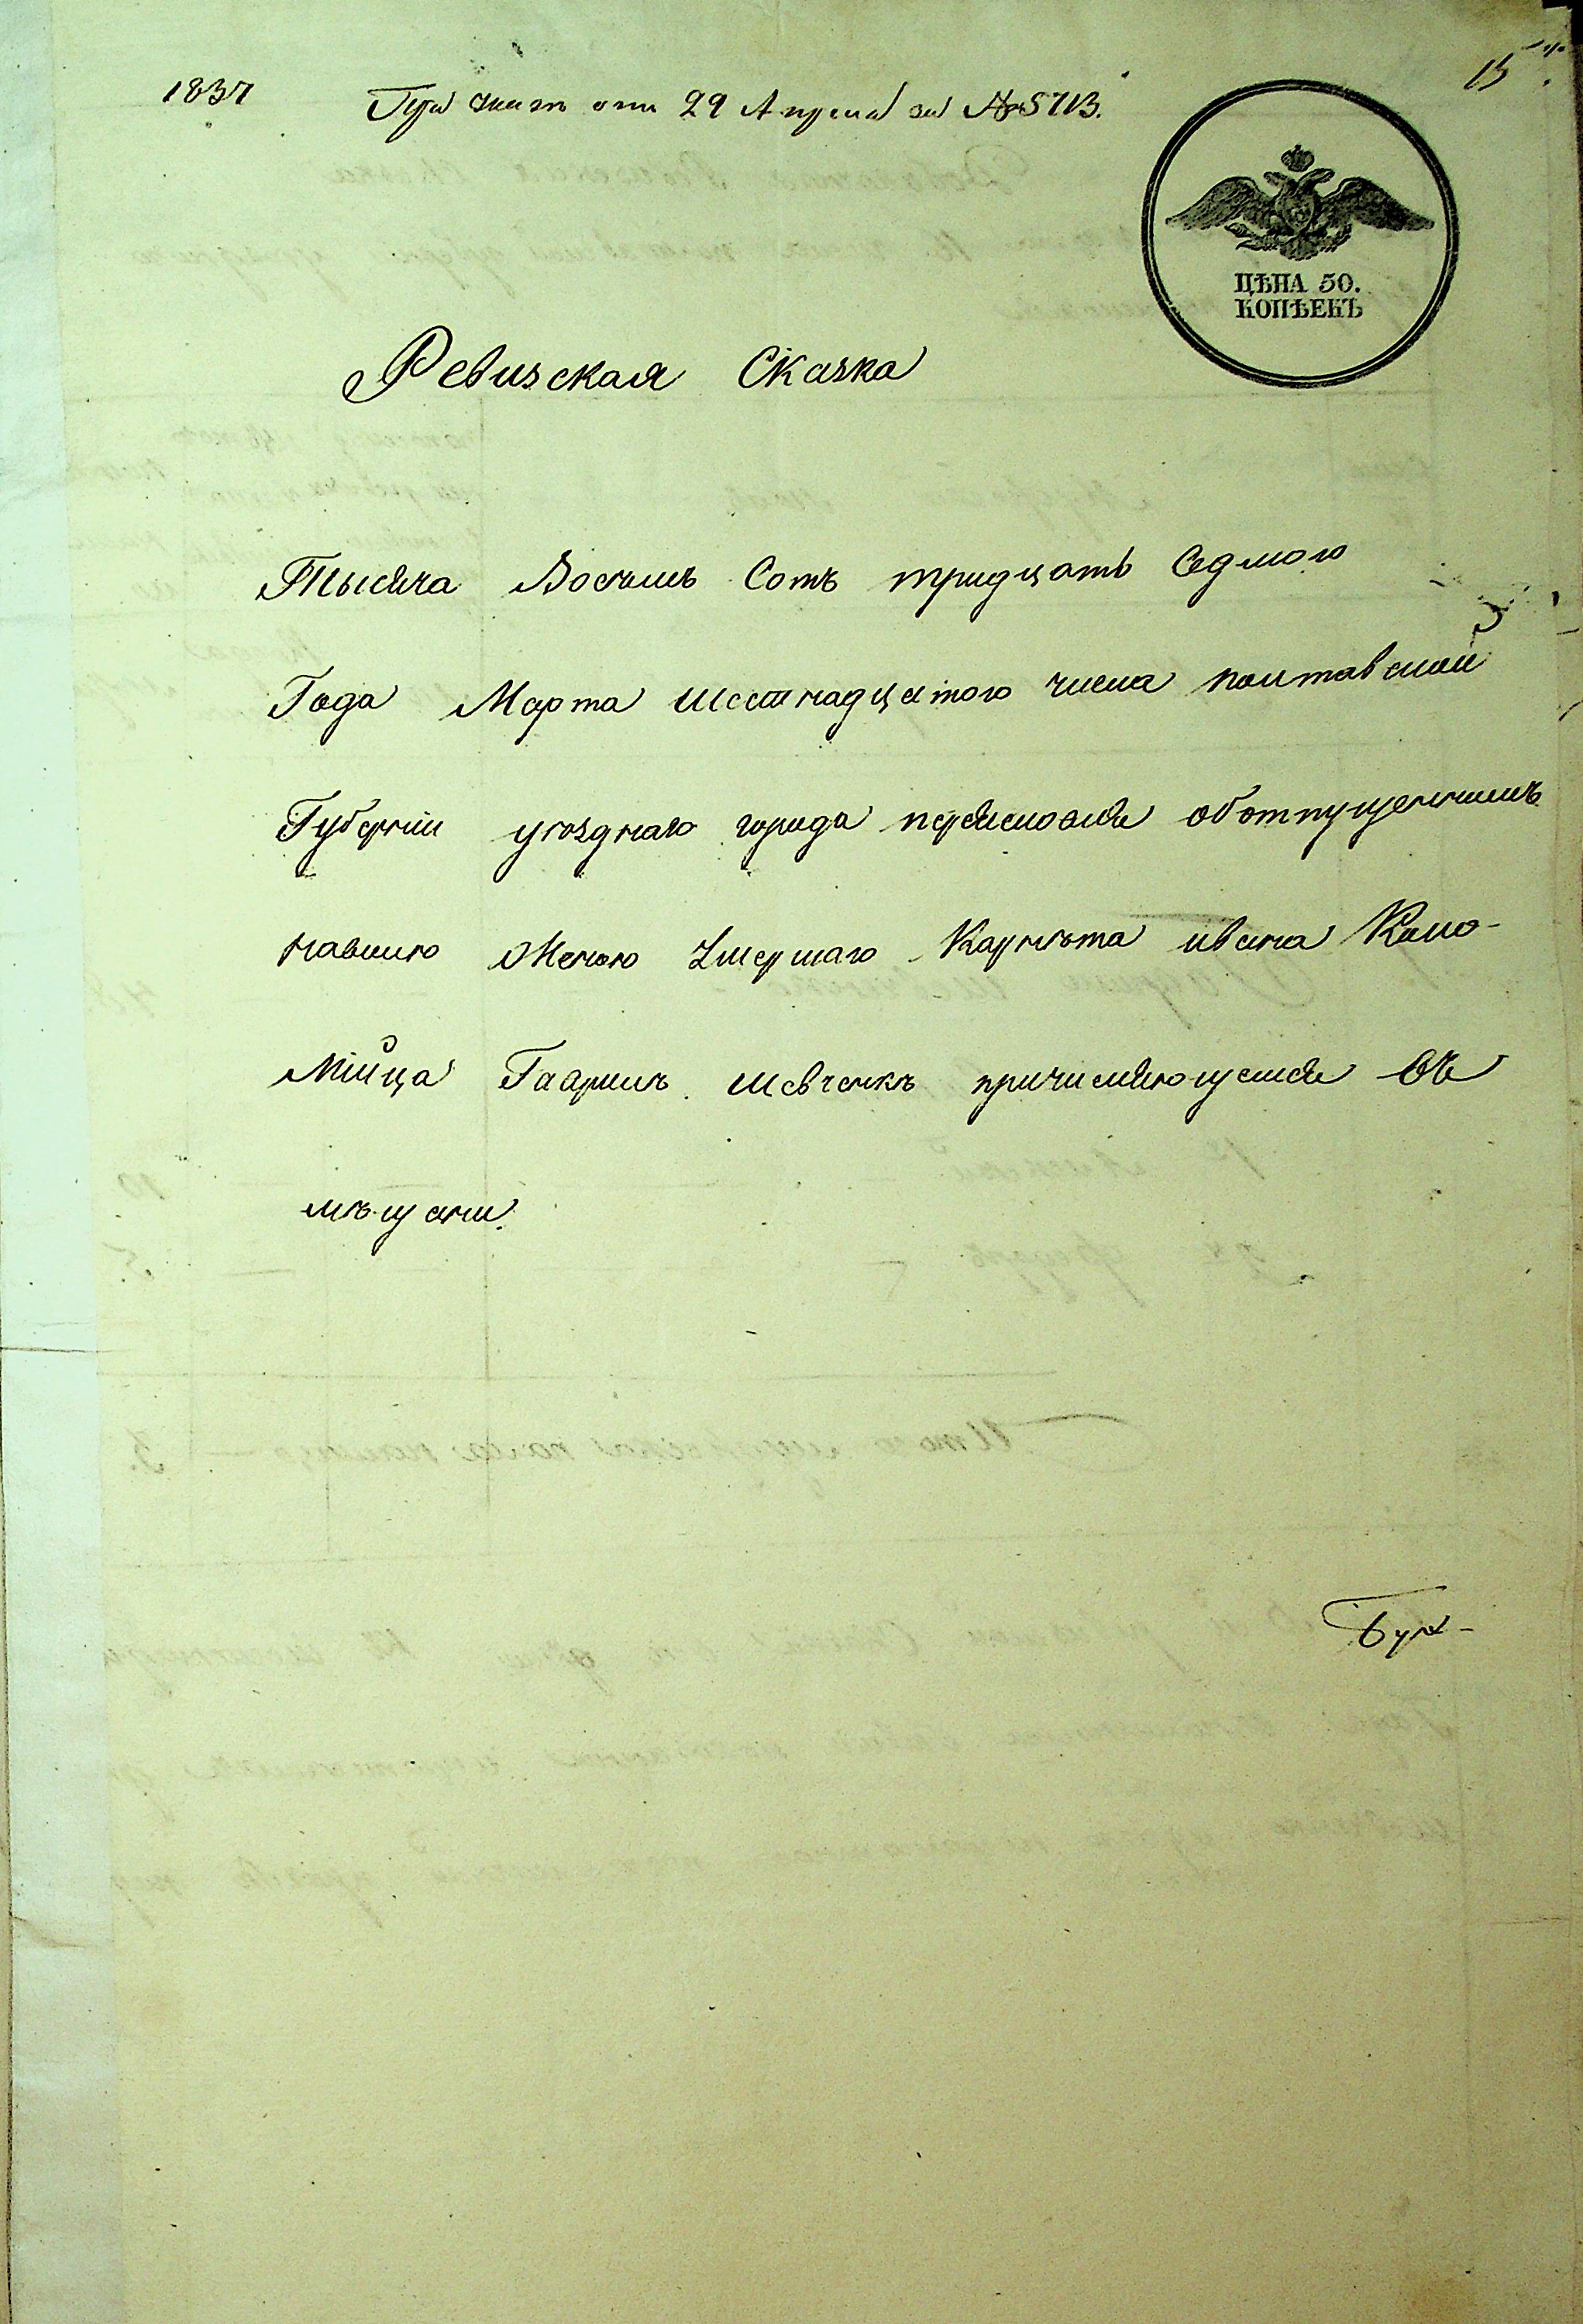 1837
При указе отъ 29 Апреля за № 5713.
15
ЦѢНА 50.
КОПѢЕКЪ
Ревизская Сказка
Тысяча Восемь Сотъ тридцать Седмого
Года Марта шестнадцетого числа полтавской
Губерніи уезднаго города переяслова оботпущенномъ
навошю Женою Умершаго Карнета ивана Коло-
мійца Гаариле шевченкѣ причисляющемся въ
мѣщани.